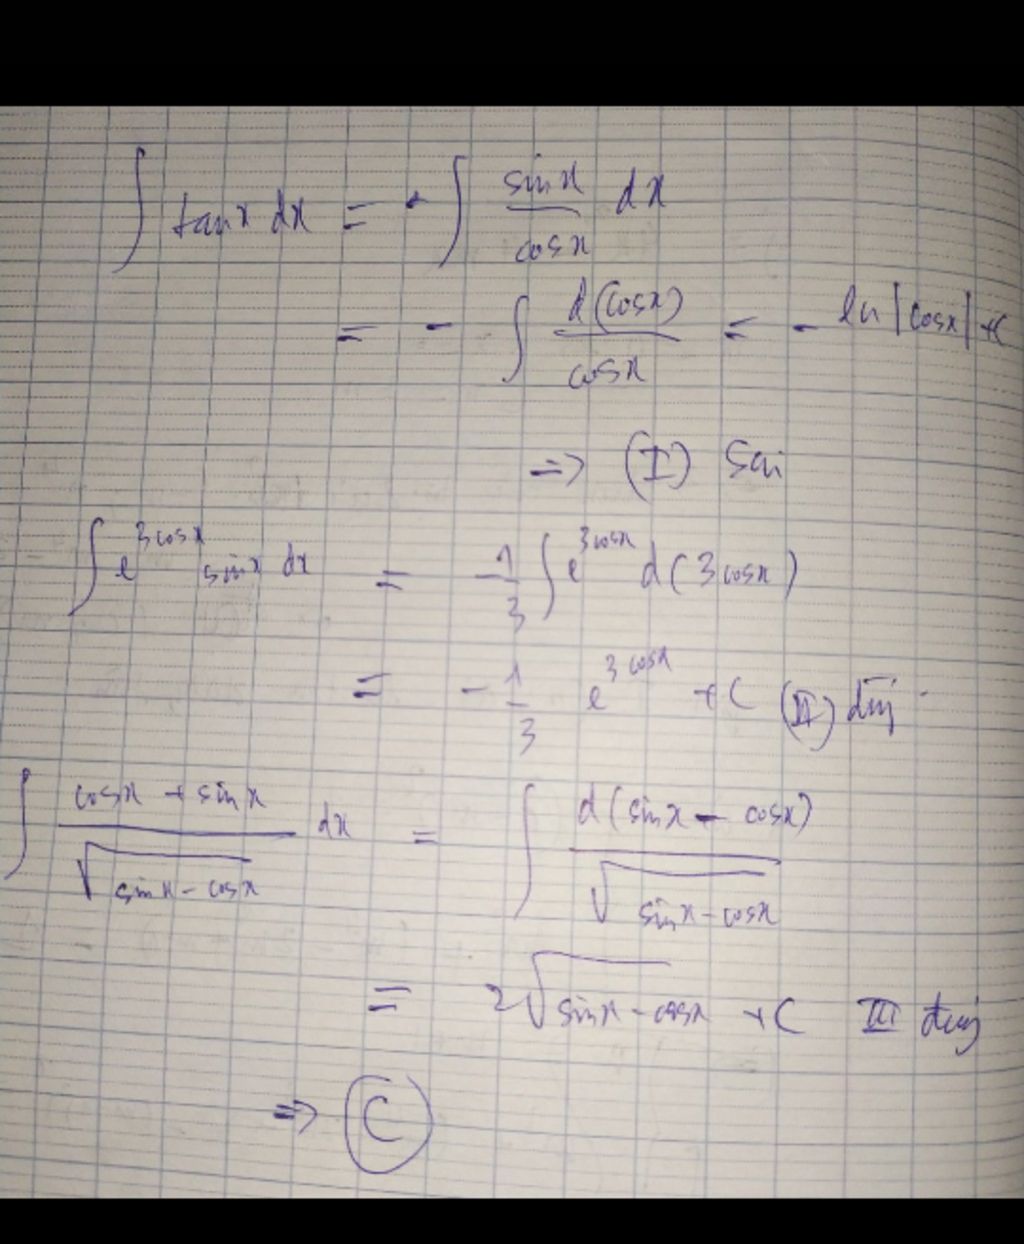 ∫ tanx dx = - ∫ sinx/cosx dx
= - ∫ d(cosx)/cosx = - ln|cosx| + C
=> (I) Sai
∫ e^{3cosx} sinx dx = -1/3 ∫ e^{3cosx} d(3cosx)
= -1/3 e^{3cosx} + C (II) đúng
∫ (cosx + sinx)/√(sinx - cosx) dx = ∫ d(sinx - cosx)/√(sinx - cosx)
= 2√(sinx - cosx) + C III đúng
=> C